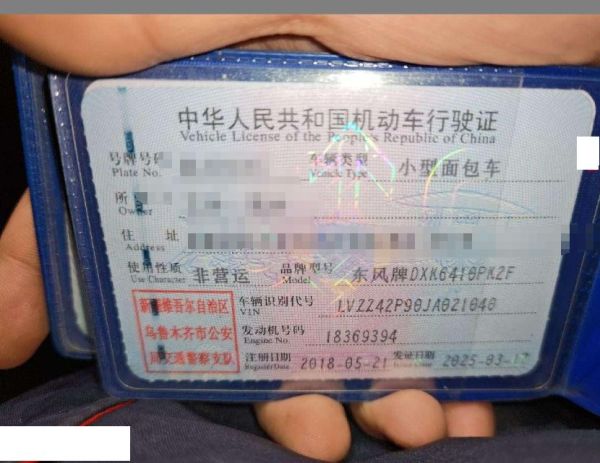 中华人民共和国机动车行驶证
Vehicle License of the People's Republic of China
号牌号码
Plate No.
车辆类型
Vehicle Type
小型面包车
所
Owner
住 址
Address
使用性质
Use Character
非营运
品牌型号
Model
东风牌DXK6410PK2F
新疆维吾尔自治区
乌鲁木齐市公安
局交通警察支队
车辆识别代号
VIN
LVZZ42P90JA021040
发动机号码
Engine No.
18369394
注册日期
Register Date
2018-05-21
发证日期
Issue Date
2025-03-